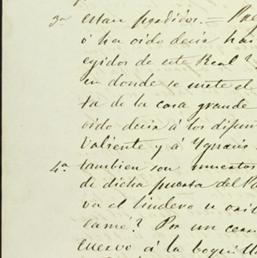 3ª estan perdidos. = Pre
ó ha oido decir ha
egidos de este Real?
en donde se mete el
ta de la casa grande
oido decir á los difun
Valiente y á Ygnaci
4ª tambien son muertos
de dicha puerta del Pa
va el lindero u ori
lamé? Por un cerr
cuervo á la boquill